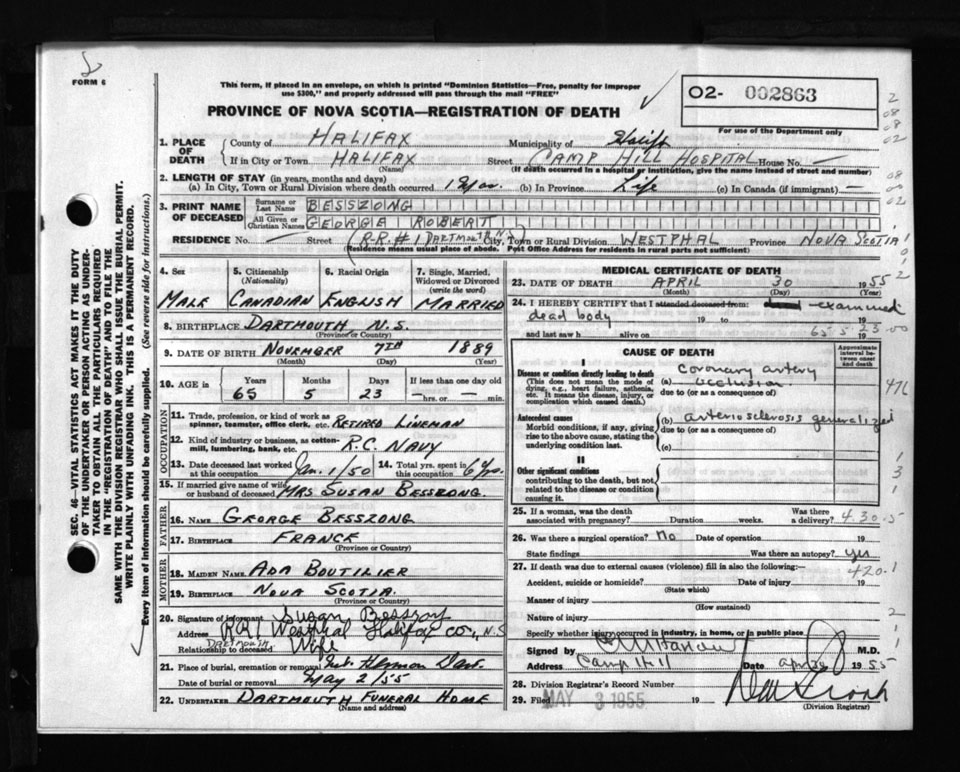 FORM 6
This form, if placed in an envelope, on which is printed "Dominion Statistics—Free, penalty for improper
use $300," and properly addressed will pass through the mail "FREE"
PROVINCE OF NOVA SCOTIA—REGISTRATION OF DEATH
02- 002863
For use of the Department only
1. PLACE OF DEATH
County of HALIFAX Municipality of
If in City or Town HALIFAX Street CAMP HILL HOSPITAL House No. —
(Name) (If death occurred in a hospital or institution, give the name instead of street and number)
2. LENGTH OF STAY (in years, months and days)
(a) In City, Town or Rural Division where death occurred (b) In Province Life (c) In Canada (if immigrant) —
3. PRINT NAME OF DECEASED
Surname or Last Name BESSZONG
All Given or Christian Names GEORGE ROBERT
RESIDENCE No. — Street (R.R. #1 DARTMOUTH N.S.) City, Town or Rural Division WESTPHAL Province NOVA SCOTIA
(Residence means usual place of abode. Post Office Address for residents in rural parts not sufficient)
4. Sex
MALE
5. Citizenship (Nationality)
CANADIAN
6. Racial Origin
ENGLISH
7. Single, Married, Widowed or Divorced (write the word)
MARRIED
8. BIRTHPLACE DARTMOUTH N.S.
(Province or Country)
9. DATE OF BIRTH NOVEMBER 7TH 1889
(Month) (Day) (Year)
10. AGE in
Years Months Days If less than one day old
65 5 23 —hrs. or — min.
OCCUPATION
11. Trade, profession, or kind of work as
spinner, teamster, office clerk, etc. RETIRED LINEMAN
12. Kind of industry or business, as cotton-
mill, lumbering, bank, etc. R.C. NAVY
13. Date deceased last worked at this occupation Jan. 1/50 14. Total yrs. spent in this occupation 6 yrs.
15. If married give name of wife
or husband of deceased MRS SUSAN BESSZONG.
FATHER
16. NAME GEORGE BESSZONG
17. BIRTHPLACE FRANCE
(Province or Country)
MOTHER
18. MAIDEN NAME ADA BOUTILIER
19. BIRTHPLACE NOVA SCOTIA.
(Province or Country)
20. Signature of informant Susan
Address RR1 Westphal Halifax Co., N.S
Relationship to deceased Wife
DARTMOUTH
21. Place of burial, cremation or removal Mt. Hermon Dart.
Date of burial or removal May 2/55
22. UNDERTAKER DARTMOUTH FUNERAL HOME
(Name and address)
MEDICAL CERTIFICATE OF DEATH
23. DATE OF DEATH APRIL 30 1955
(Month) (Day) (Year)
24. I HEREBY CERTIFY that I attended deceased from: examined
dead body 19 to 19
and last saw h alive on 19
65 5 23 00
CAUSE OF DEATH
Approximate interval between onset and death
I
Disease or condition directly leading to death
(This does not mean the mode of
dying, e.g., heart failure, asthenia,
etc. It means the disease, injury, or
complication which caused death.)
(a) coronary artery
occlusion
due to (or as a consequence of)
Antecedent causes
Morbid conditions, if any, giving
rise to the above cause, stating the
underlying condition last.
(b) arteriosclerosis generalized
due to (or as a consequence of)
(c)
II
Other significant conditions
contributing to the death, but not
related to the disease or condition
causing it.
25. If a woman, was the death
associated with pregnancy? Duration weeks. Was there a delivery?
4.30.5
26. Was there a surgical operation? No Date of operation 19
State findings Was there an autopsy? yes
27. If death was due to external causes (violence) fill in also the following:— 420.1
Accident, suicide or homicide? Date of injury 19
(State which)
Manner of injury
(How sustained)
Nature of injury
Specify whether injury occurred in industry, in home, or in public place
Signed by M.D.
Address Camp Hill Date 1955
28. Division Registrar's Record Number
29. Filed MAY 3 1955 19
(Division Registrar)
SEC. 46 VITAL STATISTICS ACT MAKES IT THE DUTY
OF THE UNDERTAKER OR PERSON ACTING AS UNDER-
TAKER TO OBTAIN ALL THE PARTICULARS REQUIRED
IN THE "REGISTRATION OF DEATH" AND TO FILE THE
SAME WITH THE DIVISION REGISTRAR WHO SHALL ISSUE THE BURIAL PERMIT.
WRITE PLAINLY WITH UNFADING INK. THIS IS A PERMANENT RECORD.
Every item of information should be carefully supplied. (See reverse side for instructions.)